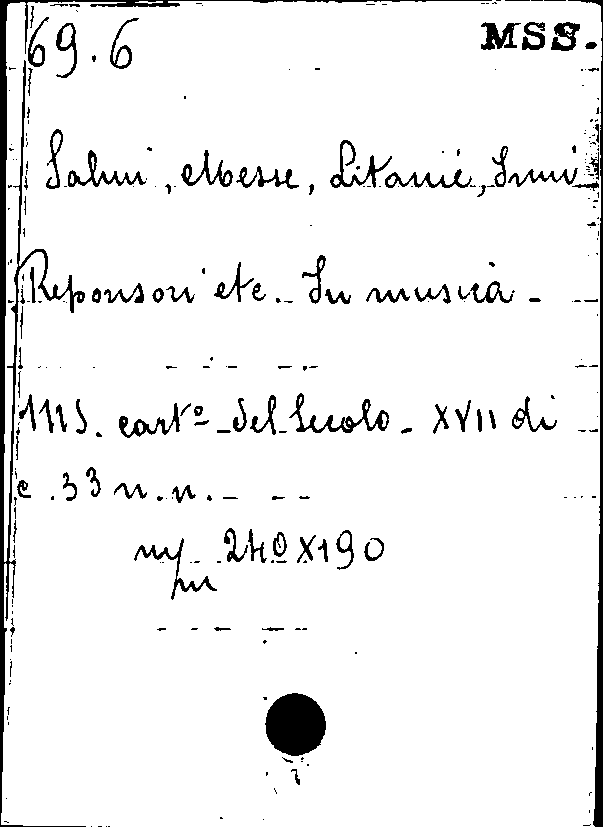 69.6 MSS.
Salmi, Messe, Litanie, Inni
Reponsori etc. In musica -
MS. cart.º del Secolo - XVII di
c. 33 n. n.
m/m 240X190